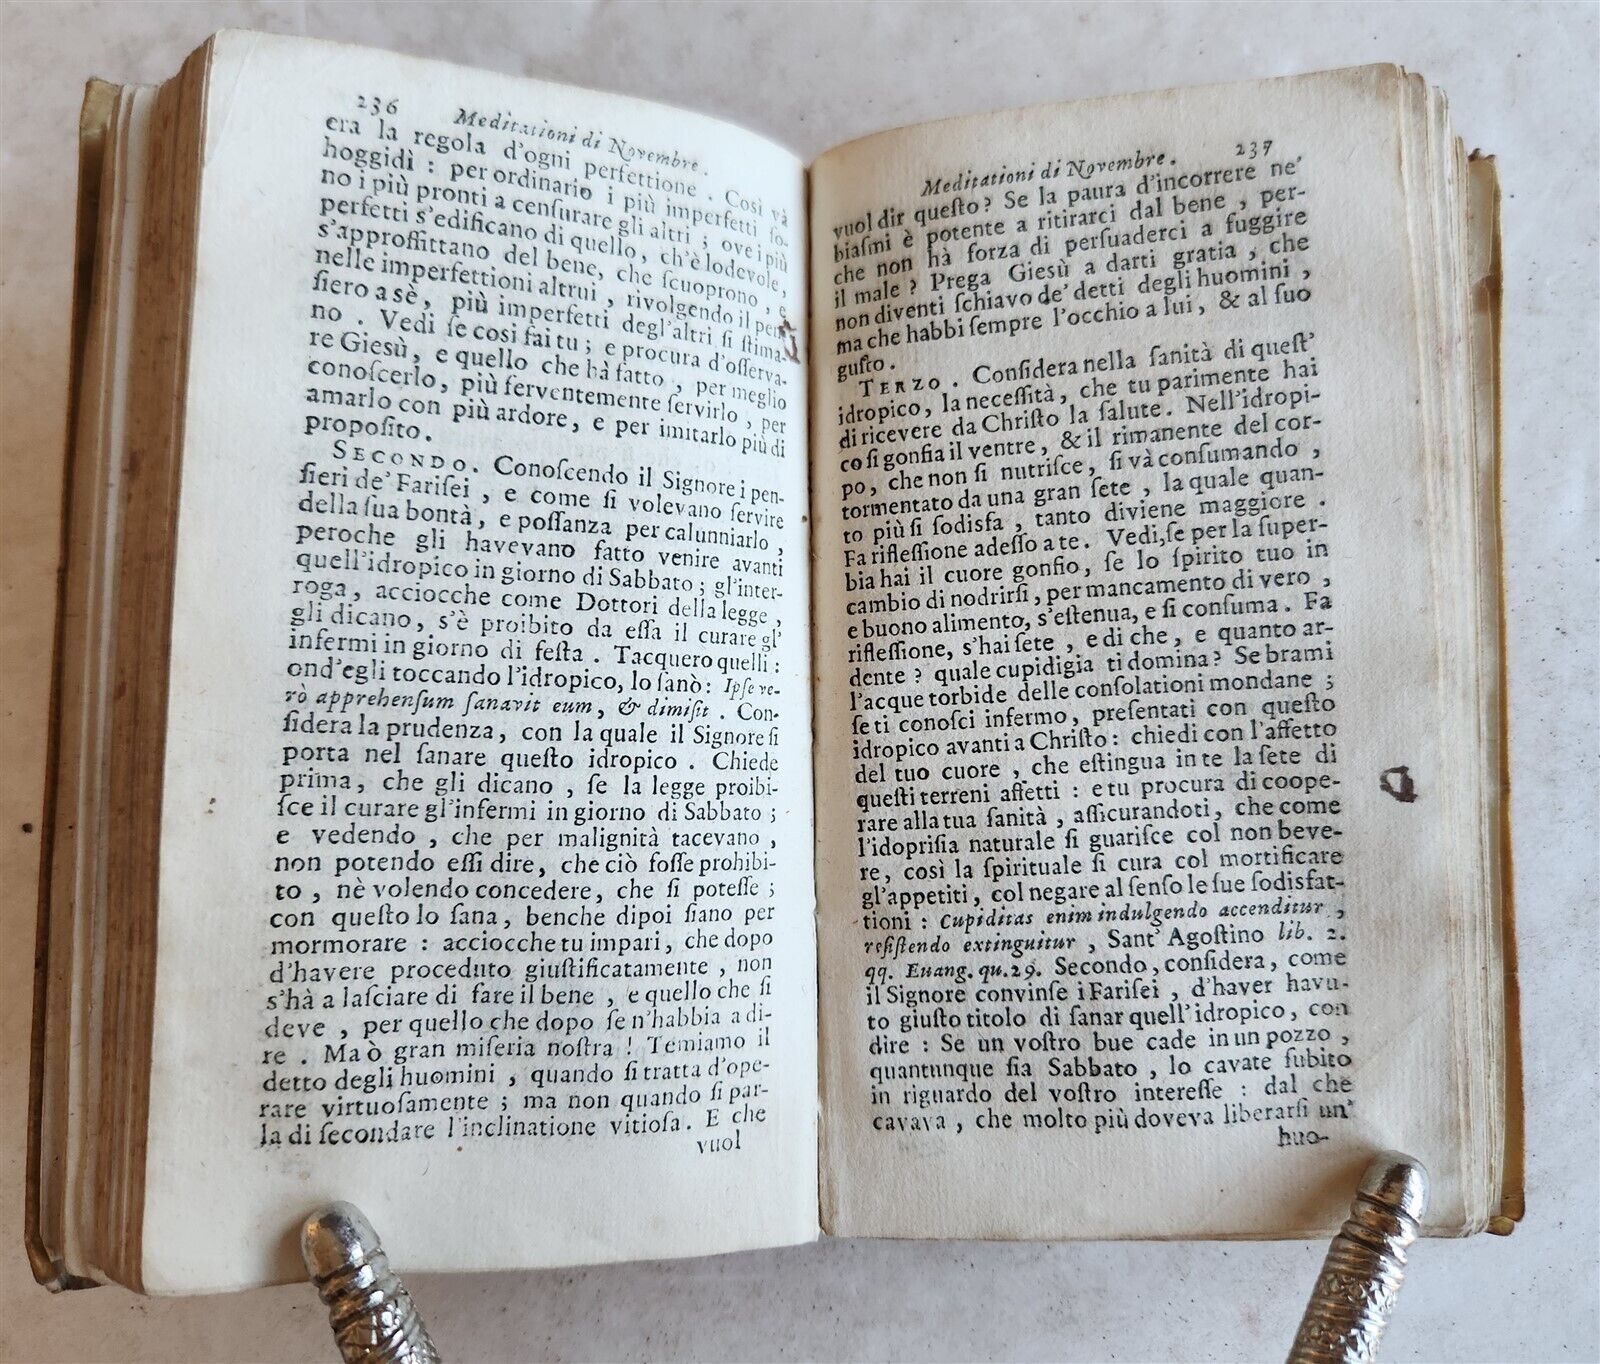 236 Meditationi di Novembre.
era la regola d'ogni perfettione . Così và
hoggidì : per ordinario i più imperfetti ſo-
no i più pronti a cenſurare gli altri ; ove i più
perfetti s'edificano di quello, ch'è lodevole,
s'approffittano del bene, che ſcuoprono , e
nelle imperfettioni altrui , rivolgendo il pen-
ſiero a sè, più imperfetti degl'altri ſi ſtima-
no . Vedi ſe cosi fai tu ; e procura d'oſſerva-
re Giesù, e quello che hà fatto , per meglio
conoſcerlo, più ferventemente ſervirlo , per
amarlo con più ardore, e per imitarlo più di
propoſito.
SECONDO. Conoſcendo il Signore i pen-
ſieri de' Fariſei , e come ſi volevano ſervire
della ſua bontà, e poſſanza per calunniarlo ,
peroche gli havevano fatto venire avanti
quell'idropico in giorno di Sabbato ; gl'inter-
roga, acciocche come Dottori della legge ,
gli dicano, s'è proibito da eſſa il curare gl'
infermi in giorno di feſta . Tacquero quelli :
ond'egli toccando l'idropico, lo ſanò: Ipſe ve-
rò apprehenſum ſanavit eum, & dimiſit . Con-
ſidera la prudenza, con la quale il Signore ſi
porta nel ſanare queſto idropico . Chiede
prima, che gli dicano , ſe la legge proibi-
ſce il curare gl'infermi in giorno di Sabbato ;
e vedendo , che per malignità tacevano ,
non potendo eſſi dire, che ciò foſſe prohibi-
to , nè volendo concedere, che ſi poteſſe ;
con queſto lo ſana, benche dipoi ſiano per
mormorare : acciocche tu impari, che dopo
d'havere proceduto giuſtificatamente , non
s'hà a laſciare di fare il bene , e quello che ſi
deve , per quello che dopo ſe n'habbia a di-
re . Ma ò gran miſeria noſtra ! Temiamo il
detto degli huomini , quando ſi tratta d'ope-
rare virtuoſamente ; ma non quando ſi par-
la di ſecondare l'inclinatione vitioſa. E che
vuol
Meditationi di Novembre. 237
vuol dir queſto? Se la paura d'incorrere ne'
biaſmi è potente a ritirarci dal bene , per-
che non hà forza di perſuaderci a fuggire
il male ? Prega Giesù a darti gratia , che
non diventi ſchiavo de' detti degli huomini ,
ma che habbi ſempre l'occhio a lui, & al ſuo
guſto .
TERZO . Conſidera nella ſanità di queſt'
idropico, la neceſſità, che tu parimente hai
di ricevere da Chriſto la ſalute. Nell'idropi-
co ſi gonfia il ventre, & il rimanente del cor-
po, che non ſi nutriſce, ſi và conſumando ,
tormentato da una gran ſete , la quale quan-
to più ſi ſodisfa , tanto diviene maggiore .
Fa rifleſſione adeſſo a te. Vedi, ſe per la ſuper-
bia hai il cuore gonfio, ſe lo ſpirito tuo in
cambio di nodrirſi, per mancamento di vero ,
e buono alimento, s'eſtenua, e ſi conſuma. Fa
rifleſſione, s'hai ſete , e di che, e quanto ar-
dente ? quale cupidigia ti domina? Se brami
l'acque torbide delle conſolationi mondane ;
ſe ti conoſci infermo, preſentati con queſto
idropico avanti a Chriſto : chiedi con l'affetto
del tuo cuore , che eſtingua in te la ſete di
queſti terreni affetti : e tu procura di coope-
rare alla tua ſanità , aſſicurandoti, che come
l'idopriſia naturale ſi guariſce col non beve-
re, così la ſpirituale ſi cura col mortificare
gl'appetiti, col negare al ſenſo le ſue ſodisfat-
tioni : Cupiditas enim indulgendo accenditur ,
reſiſtendo extinguitur , Sant' Agoſtino lib. 2.
qq. Euang. qu. 29. Secondo, conſidera, come
il Signore convinſe i Fariſei , d'haver havu-
to giuſto titolo di ſanar quell'idropico, con
dire : Se un voſtro bue cade in un pozzo ,
quantunque ſia Sabbato , lo cavate ſubito
in riguardo del voſtro intereſſe : dal che
cavava , che molto più doveva liberarſi un'
huo-